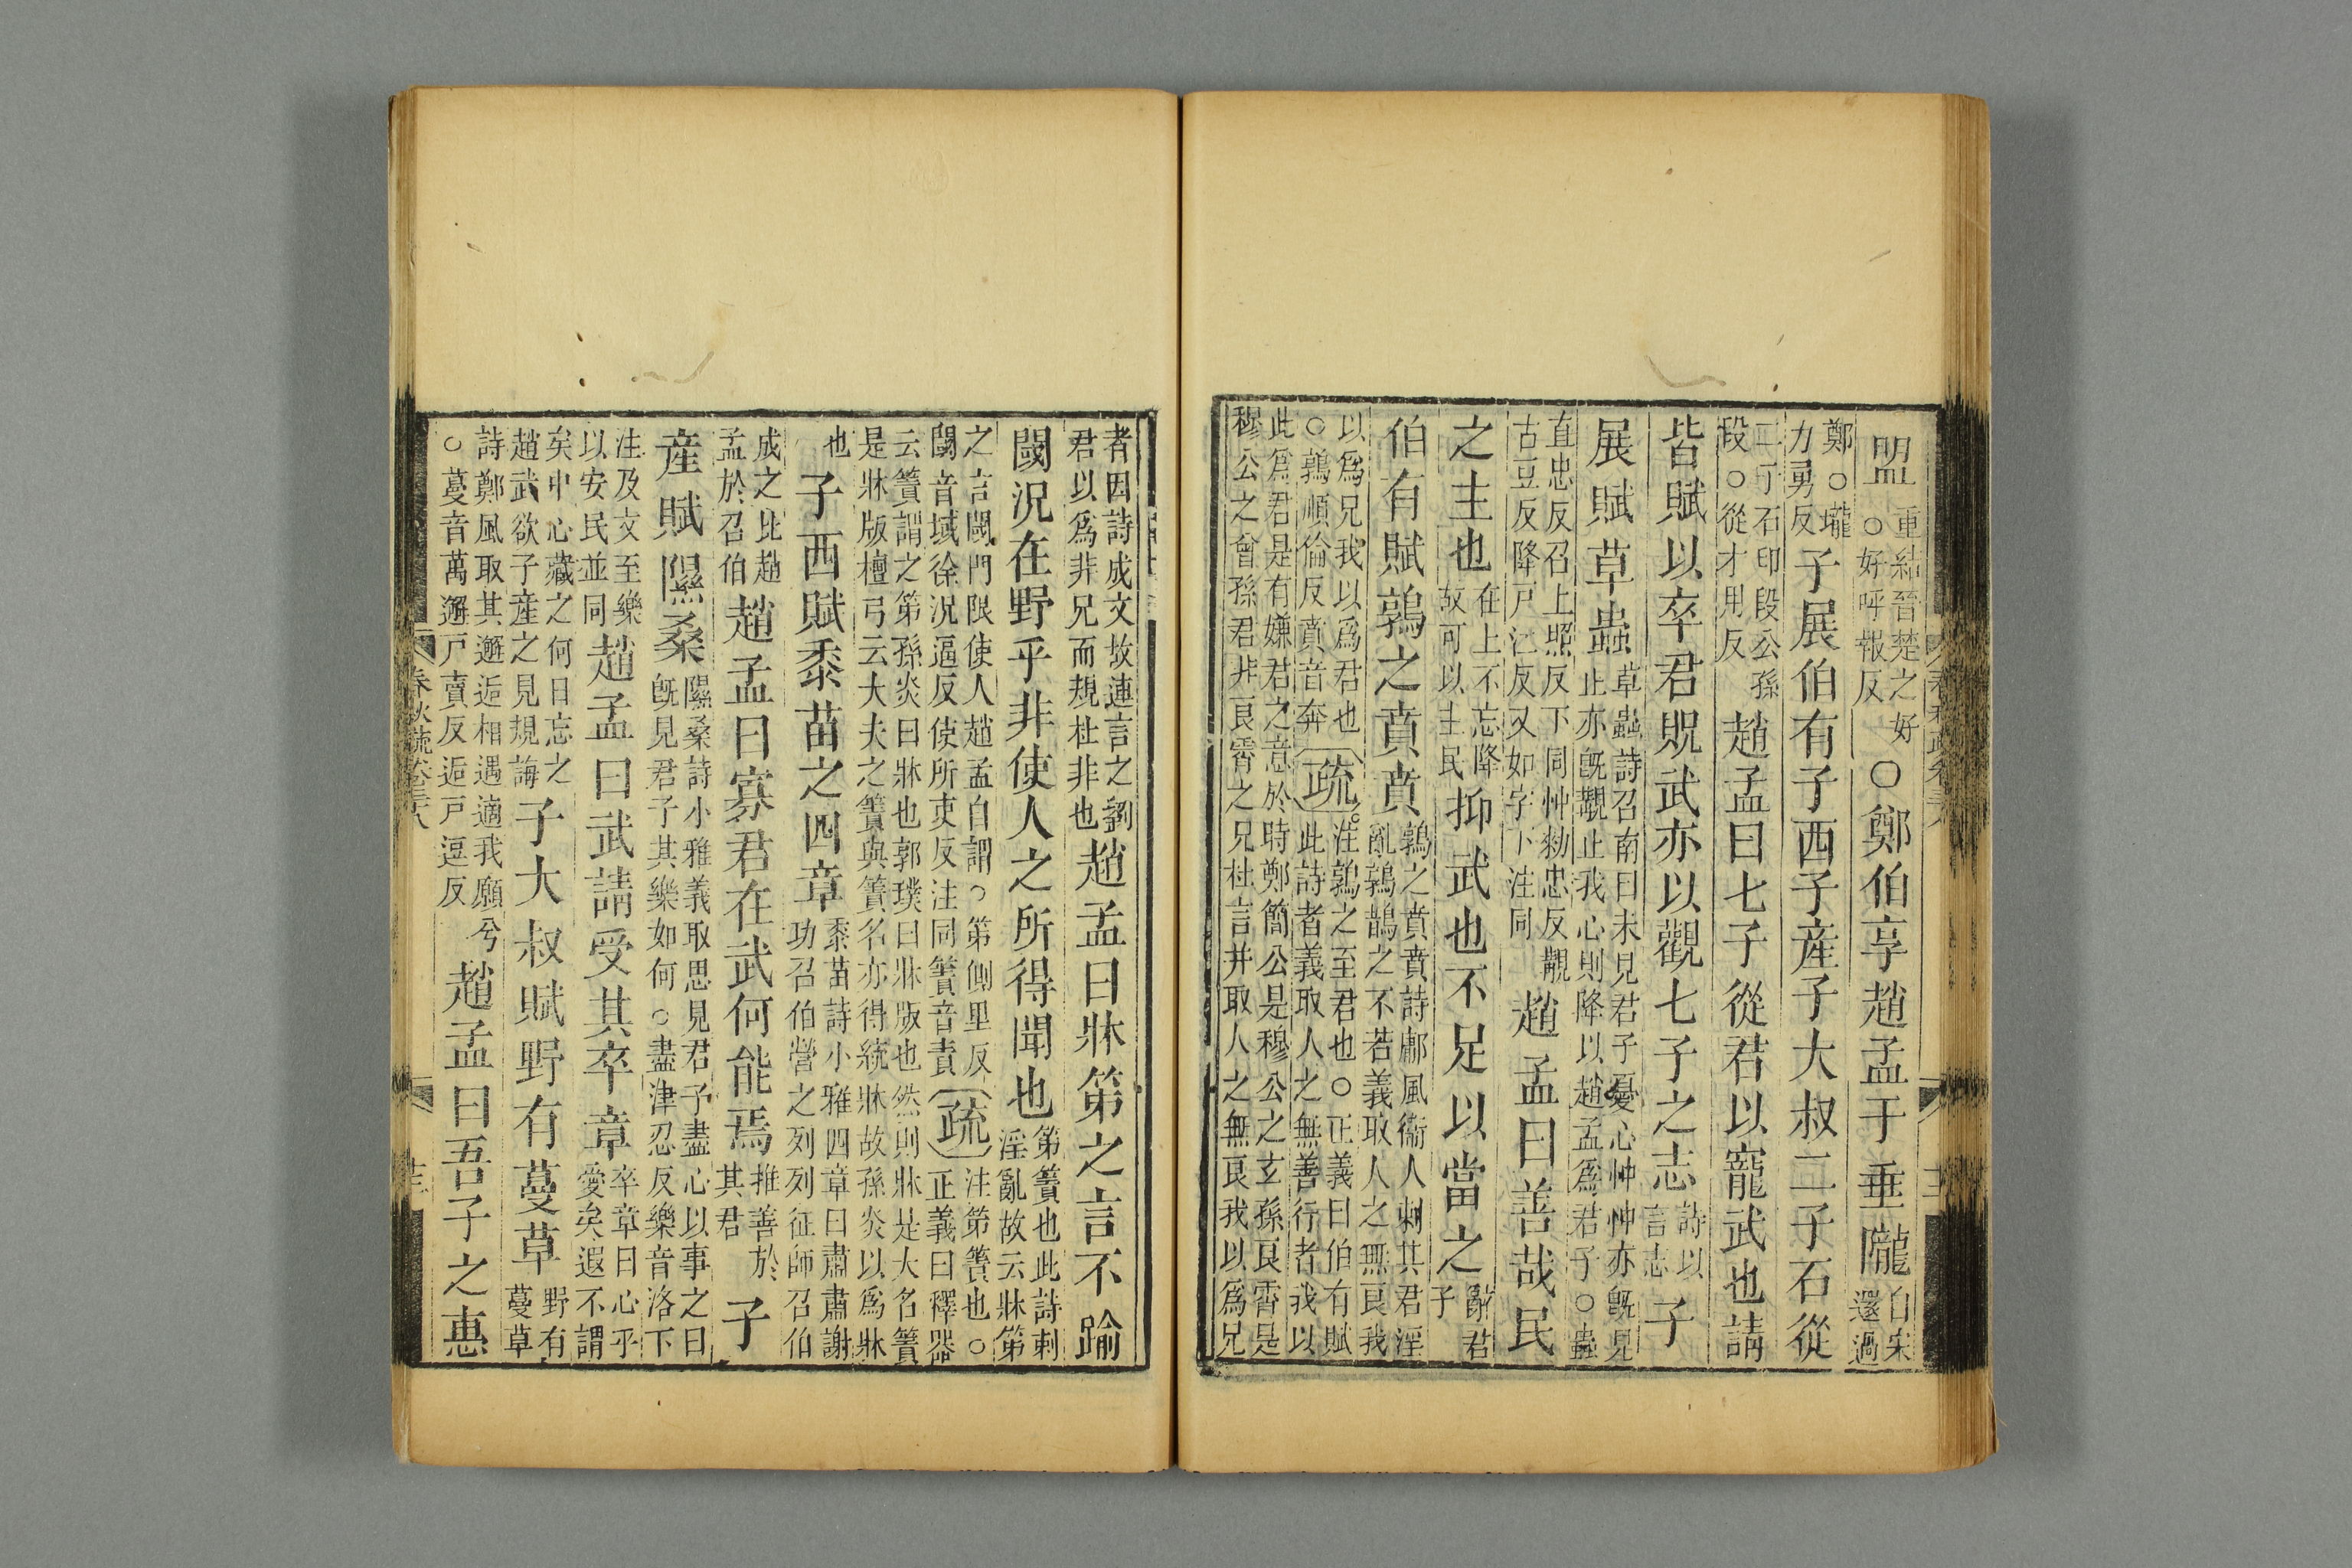 盟重結晉楚之好○好呼報反○鄭伯享趙孟于垂隴自宋還過
鄭○壠力勇反子展伯有子西子產子大叔二子石從
二子石印段公孫段○從才用反趙孟曰七子從君以寵武也請
皆賦以卒君貺武亦以觀七子之志詩以言志子
展賦草蟲草蟲詩召南曰未見君子憂心忡忡亦旣見止亦旣覯止我心則降以趙孟爲君子○蟲
直忠反召上照反下同忡勑忠反覯古豆反降戸江反又如字下注同趙孟曰善哉民
之主也在上不忘降故可以主民抑武也不足以當之辭君子
伯有賦鶉之賁賁鶉之賁賁詩鄘風衞人刺其君淫亂鶉鵲之不若義取人之無良我
以爲兄我以爲君也○鶉順倫反賁音奔疏注鶉之至君也○正義曰伯有賦此詩者義取人之無善行者我以
此爲君是有嫌君之意於時鄭簡公是穆公之玄孫良霄是穆公之曾孫君非良霄之兄杜言幷取人之無良我以爲兄
者因詩成文故連言之劉君以爲非兄而規杜非也趙孟曰牀第之言不踰
閾況在野乎非使人之所得聞也第簀也此詩刺淫亂故云牀第
之言閾門限使人趙孟自謂○第側里反閾音域徐況逼反使所吏反注同簀音責疏注第簀也○正義曰釋器
云簀謂之第孫炎曰牀也郭璞曰牀版也然則牀是大名簀是牀版檀弓云大夫之簀與簀名亦得統牀故孫炎以爲牀
也子西賦黍苗之四章黍苗詩小雅四章曰肅肅謝功召伯營之列列征師召伯
成之比趙孟於召伯趙孟曰寡君在武何能焉推善於其君子
產賦隰桑隰桑詩小雅義取思見君子盡心以事之曰旣見君子其樂如何○盡津忍反樂音洛下
注及文至樂以安民並同趙孟曰武請受其卒章卒章曰心乎愛矣遐不謂
矣中心藏之何日忘之趙武欲子產之見規誨子大叔賦野有蔓草野有蔓草
詩鄭風取其邂逅相遇適我願兮○蔓音萬邂戸賣反逅戸逗反趙孟曰吾子之惠
春秋疏卷三十八